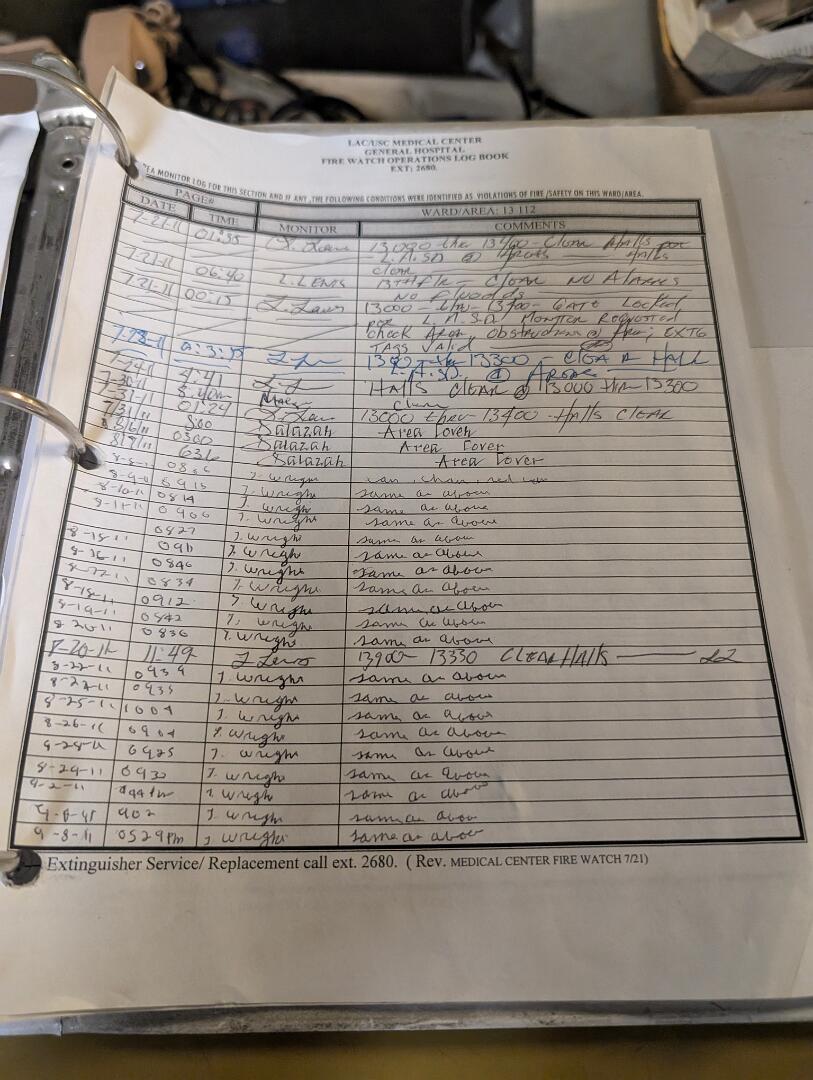 LAC/USC MEDICAL CENTER
GENERAL HOSPITAL
FIRE WATCH OPERATIONS LOG BOOK
EXT: 2680.
EA MONITOR LOG FOR THIS SECTION AND IF ANY ,THE FOLLOWING CONDITIONS WERE IDENTIFIED AS VIOLATIONS OF FIRE /SAFETY ON THIS WARD/AREA.
PAGE# WARD/AREA: 13 112
DATE TIME MONITOR COMMENTS
7-21-11 01:35 13000 thru 13400 - Clear Halls per
L.A.SD @ Areas Halls
7-21-11 Clear
06:40 L. LEWIS 13TH FLR - CLEAR NO ALARMS
7-21-11 00:15 L. Lewis NO
13000 - thru - 13400 - GATE Locked
per L.A.SD. MONITOR REQUESTED
check Area obstructions @ Area; EXTG
TAGS Valid
7-28-11 - thru 13300 - CLEAR HALL
L.A.SD. @ Areas
4:41 HALLS CLEAR @ 13000 thru 13300
7-30-11 Clear
7/31/11 01:29 L. Lewis 13000 thru - 13400 - Halls CLEAR
8/6/11 500 Salazah Area Cover
8/7/11 0300 Salazah Area Cover
636 Salazah Area Cover
J. Wright
8-9-11 0915 J. Wright same as above
8-10-11 0814 J. Wright same as above
8-11-11 0906 J. Wright same as above
0827 J. Wright same as above
8-15-11 0911 J. Wright same as above
8-16-11 0846 J. Wright same as above
0834 J. Wright same as above
8-18-11 0912 J. Wright same as above
8-19-11 0842 J. Wright same as above
8-20-11 0836 J. Wright same as above
8-20-11 11:49 L Lewis 13330 CLEAR HALLS LL
8-22-11 0939 J. Wright same as above
0935 J. Wright same as above
8-25-11 1004 J. Wright same as above
8-26-11 0904 J. Wright same as above
0925 J. Wright same as above
8-29-11 0932 J. Wright same as above
9-2-11 J. Wright same as above
902 J. Wright same as above
9-8-11 0529pm J wright same as above
Extinguisher Service/ Replacement call ext. 2680. ( Rev. MEDICAL CENTER FIRE WATCH 7/21)